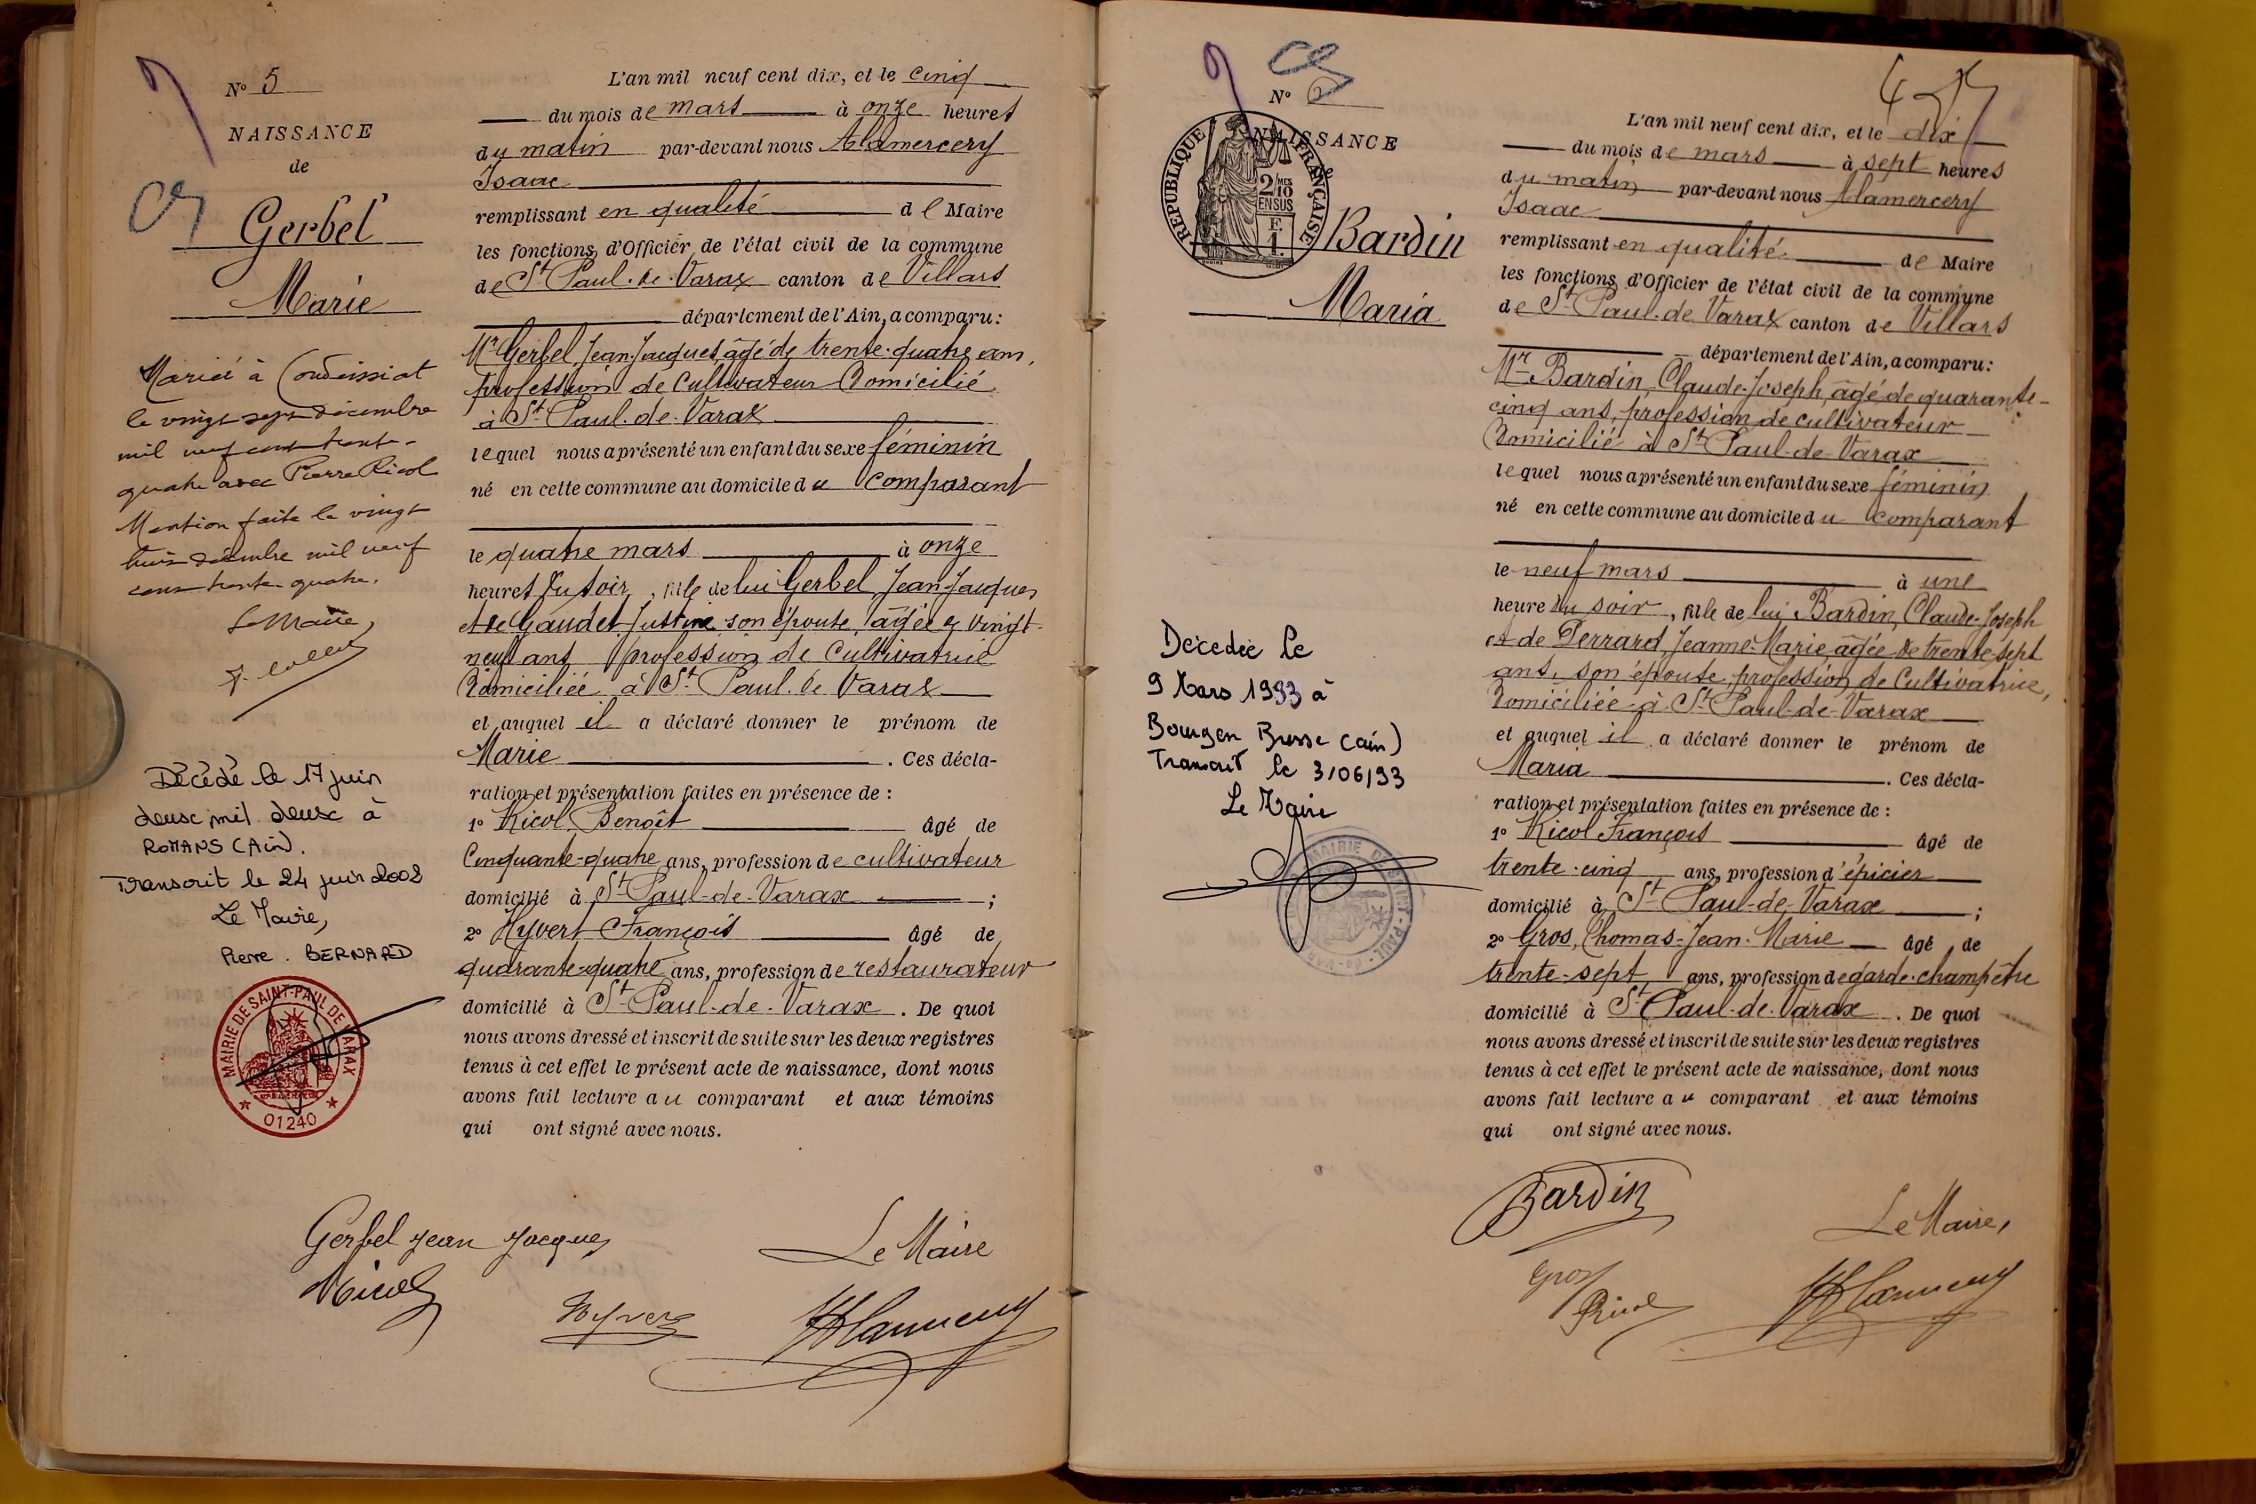 N° 5
NAISSANCE
de
Gerbel
Marie
Mariée à Condeissiat
le vingt sept décembre
mil neuf cent trent-
quatre avec Pierre Ricol
Mention faite le vingt
huit décembre mil neuf
cent trente quatre.
Le Maire,
Décédé le 17 juin
deux mil deux à
ROMANS (Ain).
Transcrit le 24 juin 2002
Le Maire,
Pierre. BERNARD
MAIRIE DE SAINT-PAUL DE VARAX
01240
L'an mil neuf cent dix, et le cinq
du mois de mars à onze heures
du matin par-devant nous Alamercery
Isaac
remplissant en qualité de Maire
les fonctions d'Officier de l'état civil de la commune
de St Paul-de-Varax canton de Villars
département de l'Ain, a comparu:
Mr Gerbel, Jean-Jacques, âgé de trente-quatre ans,
profession de cultivateur domicilié
à St Paul-de-Varax
lequel nous a présenté un enfant du sexe féminin
né en cette commune au domicile du comparant
le quatre mars à onze
heures du soir, fille de lui Gerbel, Jean-Jacques
et de Gaudet Justine son épouse, âgée de vingt-
neuf ans profession de cultivatrice
domiciliée à St Paul-de-Varax
et auquel il a déclaré donner le prénom de
Marie. Ces décla-
ration et présentation faites en présence de :
1° Ricol Benoît âgé de
Cinquante-quatre ans, profession de cultivateur
domicilié à St Paul-de-Varax ;
2° Hyvert François âgé de
quarante-quatre ans, profession de restaurateur
domicilié à St Paul-de-Varax. De quoi
nous avons dressé et inscrit de suite sur les deux registres
tenus à cet effet le présent acte de naissance, dont nous
avons fait lecture au comparant et aux témoins
qui ont signé avec nous.
Gerbel Jean Jacques
Le Maire
Ricol
Hyvert
N°
NAISSANCE
REPUBLIQUE FRANÇAISE
2/10
MES
EN SUS
F.
1.
Bardin
Maria
Décédée le
9 Mars 1993 à
Bourg en Bresse (ain)
Transcrit le 3/06/93
Le Maire
MAIRIE DE SAINT-PAUL-de-VARAX
L'an mil neuf cent dix, et le dix
du mois de mars à sept heures
du matin par-devant nous Alamercery
Isaac
remplissant en qualité de Maire
les fonctions d'Officier de l'état civil de la commune
de St Paul-de-Varax canton de Villars
département de l'Ain, a comparu:
Mr Bardin, Claude-Joseph, âgé de quarante-
cinq ans, profession de cultivateur
domicilié à St Paul-de-Varax
lequel nous a présenté un enfant du sexe féminin
né en cette commune au domicile du comparant
le neuf mars à une
heure du soir, fille de lui Bardin, Claude-Joseph
et de Perraud, Jeanne-Marie âgée de trente-sept
ans, son épouse, profession de cultivatrice,
domiciliée à St Paul-de-Varax
et auquel il a déclaré donner le prénom de
Maria. Ces décla-
ration et présentation faites en présence de :
1° Ricol François âgé de
trente-cinq ans, profession d'épicier
domicilié à St Paul-de-Varax ;
2° Gros, Thomas-Jean-Marie âgé de
trente-sept ans, profession de garde-champêtre
domicilié à St Paul-de-Varax. De quoi
nous avons dressé et inscrit de suite sur les deux registres
tenus à cet effet le présent acte de naissance, dont nous
avons fait lecture au comparant et aux témoins
qui ont signé avec nous.
Bardin
Le Maire,
Gros
Ricol